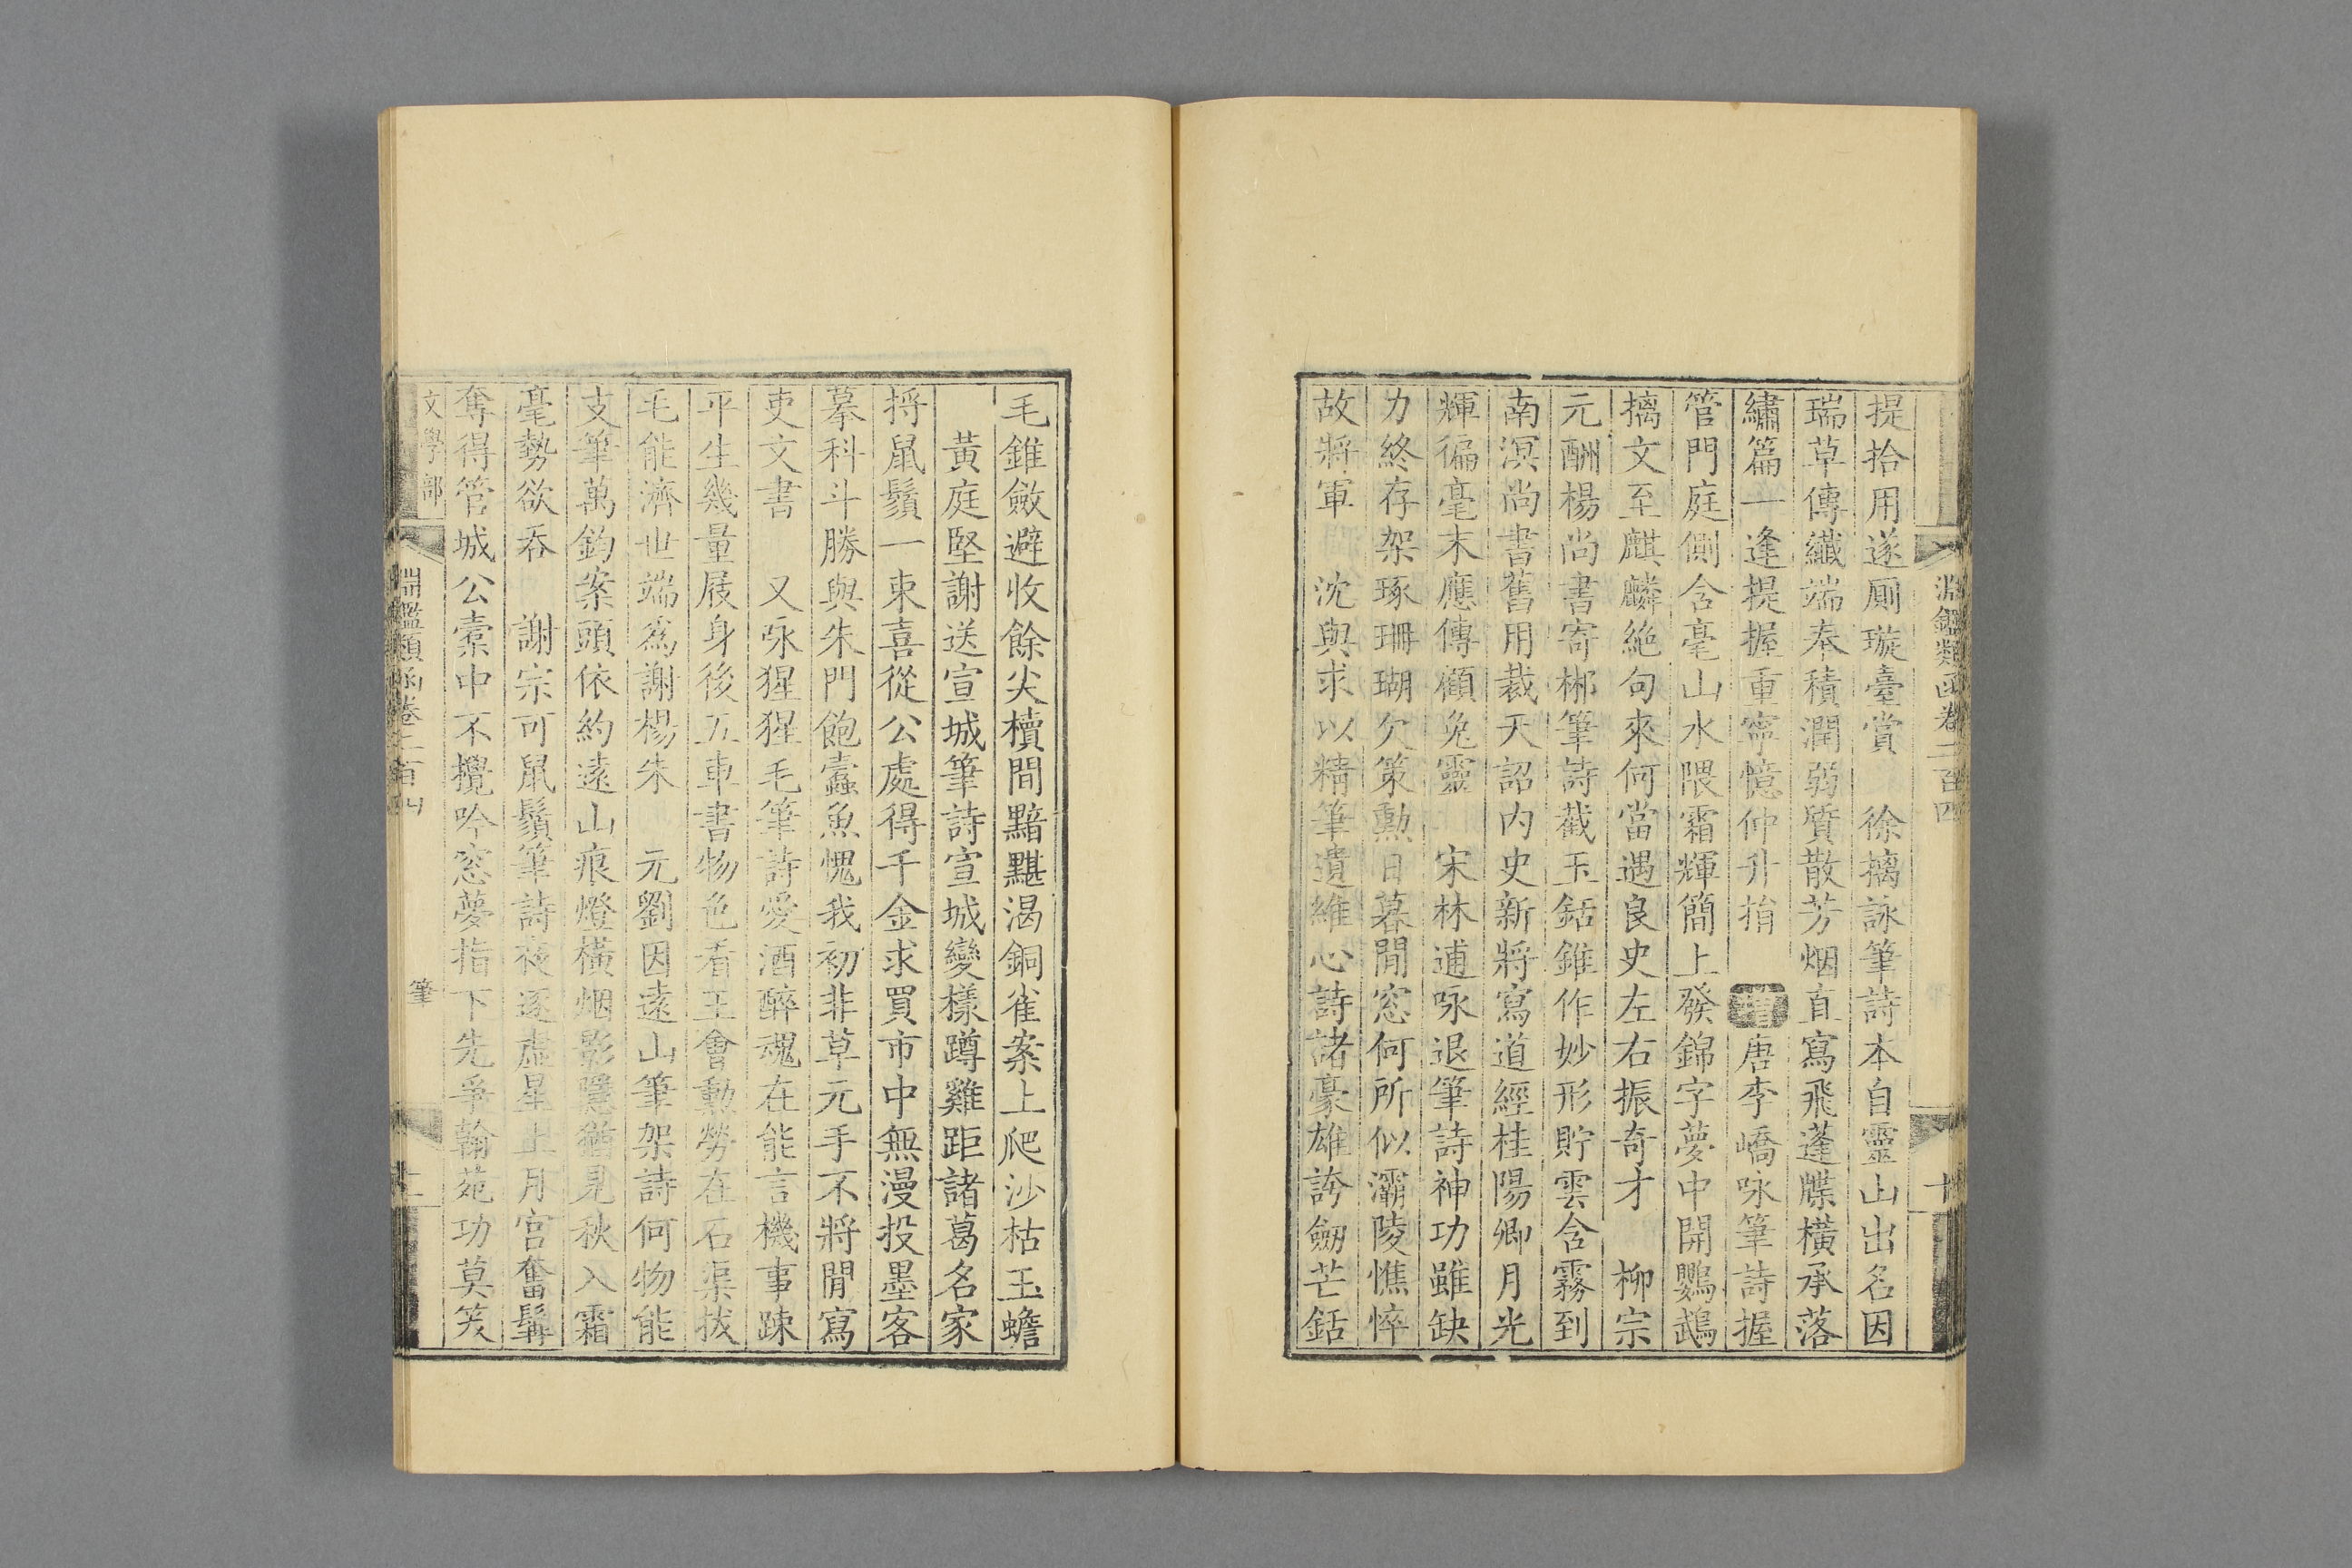 淵鑑類函卷二百四
十
提拾用遂厠璇臺賞　徐摛詠筆詩本自靈山出名因
瑞草傳纖端奉積潤弱質散芳烟直寫飛蓬牒橫承落
繡篇一逢提握重寧憶仲升捐　增唐李嶠咏筆詩握
管門庭側含毫山水隈霜輝簡上發錦字夢中開鸚鵡
摛文至麒麟絶句來何當遇良史左右振奇才　柳宗
元酬楊尚書寄郴筆詩截玉銛錐作妙形貯雲含霧到
南溟尚書舊用裁天詔内史新將寫道經桂陽卿月光
輝徧毫末應傳顧兔靈　宋林逋咏退筆詩神功雖缺
力終存架琢珊瑚欠策勳日暮閒窓何所似灞陵憔悴
故將軍　沈與求以精筆遺維心詩諸豪雄誇劒芒銛
毛錐斂避收餘尖櫝間黯黮渴銅雀案上爬沙枯玉蟾
黃庭堅謝送宣城筆詩宣城變樣蹲雞距諸葛名家
捋鼠鬚一束喜從公處得千金求買市中無漫投墨客
摹科斗勝與朱門飽蠹魚愧我初非草元手不將閒寫
吏文書　又咏猩猩毛筆詩愛酒醉魂在能言機事踈
平生幾量屐身後五車書物色看王會勳勞在石渠拔
毛能濟世端爲謝楊朱　元劉因遠山筆架詩何物能
支筆萬鈞案頭依約遠山痕燈橫烟影隱猶見秋入霜
毫勢欲吞　謝宗可鼠鬚筆詩夜逐虛星上月宫奮髯
奪得管城公橐中不攪吟窓夢指下先爭翰苑功莫笑
文學部
淵鑑類函卷二百四
筆
十一